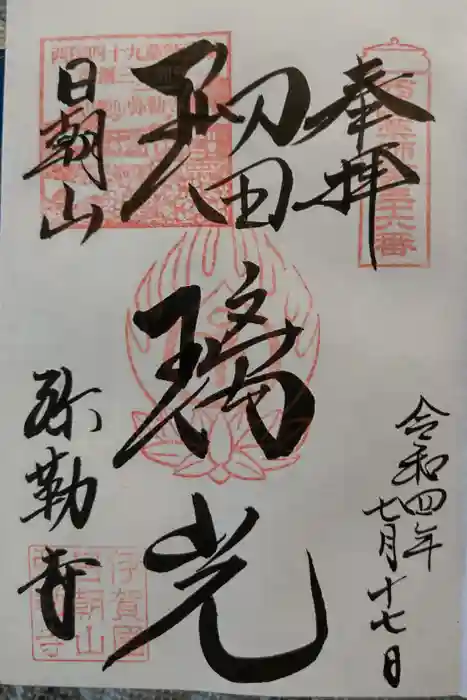 奉拝
令和四年
七月十七日
瑠璃光
日朝山
弥勒寺
伊賀國
日朝山